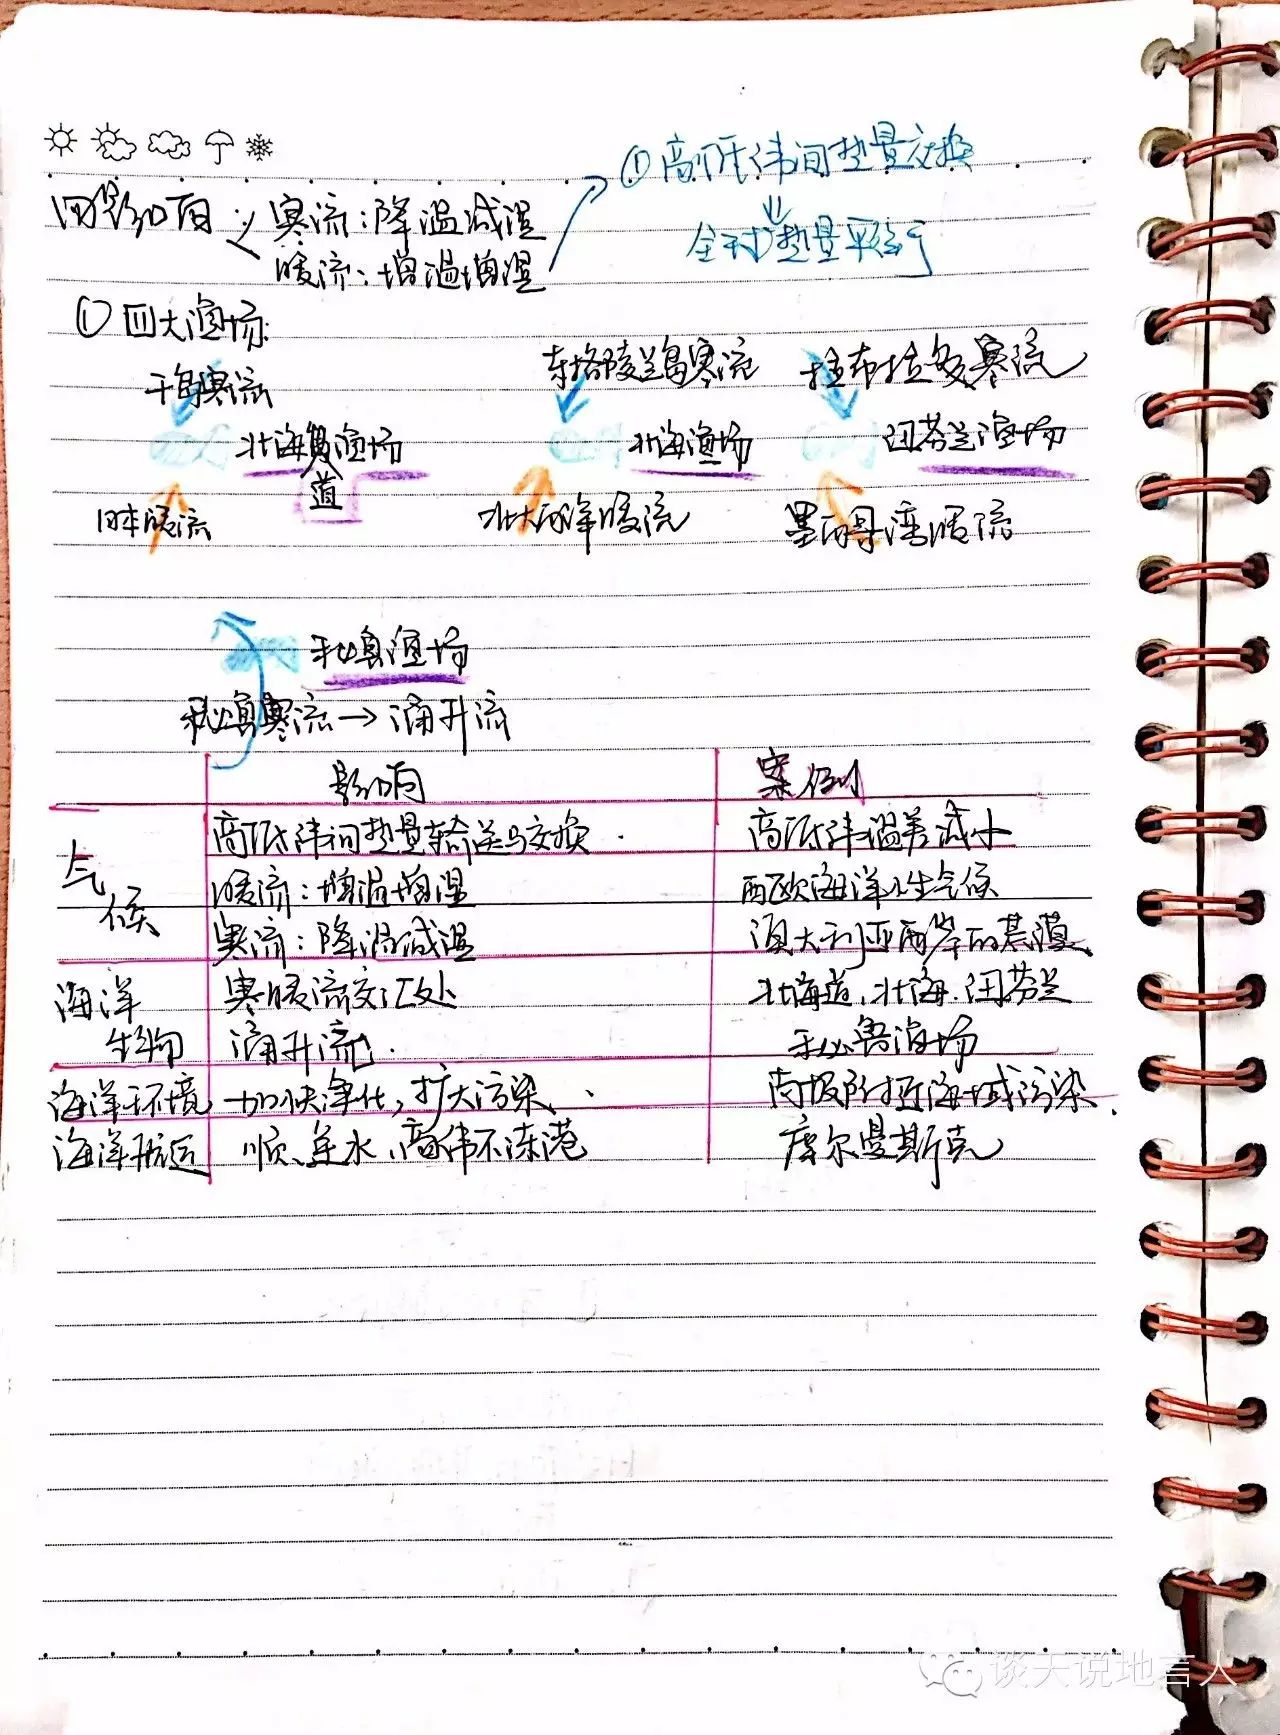 四影响 寒流：降温减湿
暖流：增温增湿
①高低纬间热量交换
全球热量平衡
①四大渔场：
千岛寒流 东格陵兰岛寒流 拉布拉多寒流
北海道渔场 北海渔场 纽芬兰渔场
日本暖流 北大西洋暖流 墨西哥湾暖流
秘鲁渔场
秘鲁寒流→涌升流
影响 案例
气候 高低纬间热量输送与交换. 高低纬温差减小
暖流：增温增湿 西欧海洋性气候
寒流：降温减湿 澳大利亚西岸的荒漠
海洋生物 寒暖流交汇处 北海道、北海、纽芬兰
涌升流. 秘鲁渔场
海洋环境 加快净化,扩大污染、 南极附近海域污染.
海洋航运 顺、逆水、高纬不冻港 摩尔曼斯克
谈天说地言人